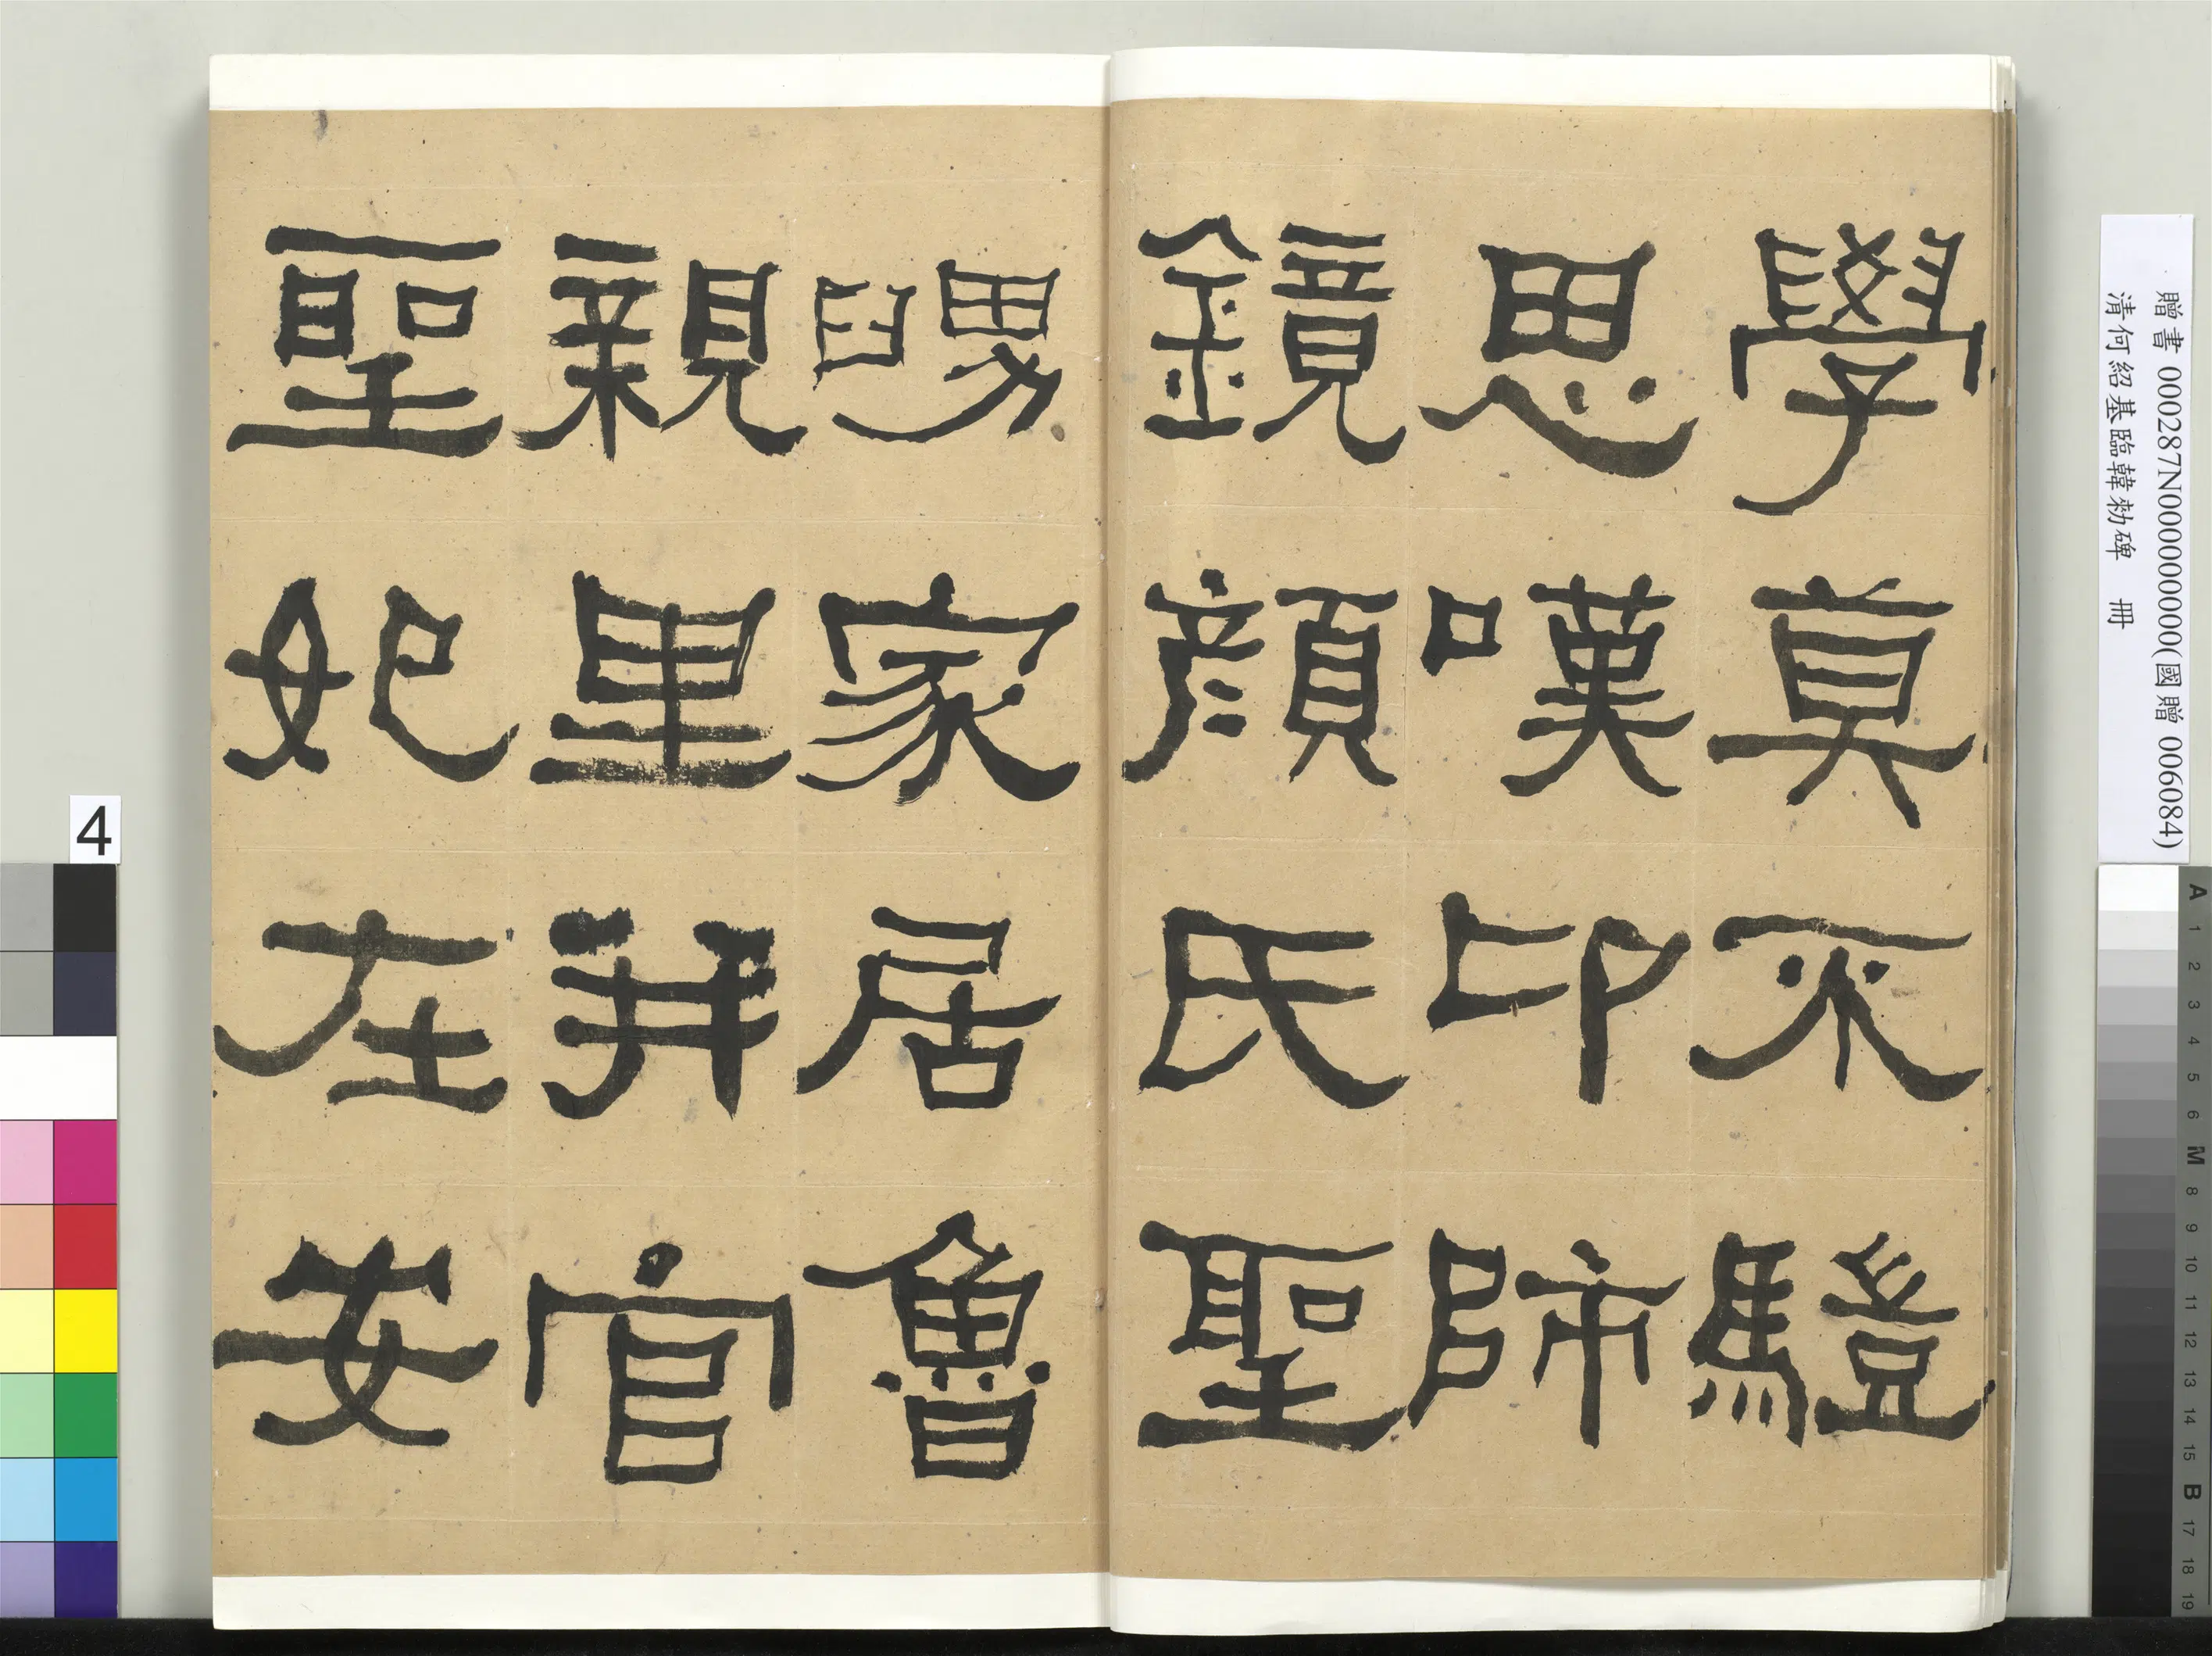 學莫不驥
思嘆卬師
鏡顏氏聖
舅家居魯
親里并官
聖妃在安
贈書 000287N000000000(國贈 006084)
清何紹基臨韓勑碑 冊
4
A 1 2 3 4 5 6 M 8 9 10 11 12 13 14 15 B 17 18 19